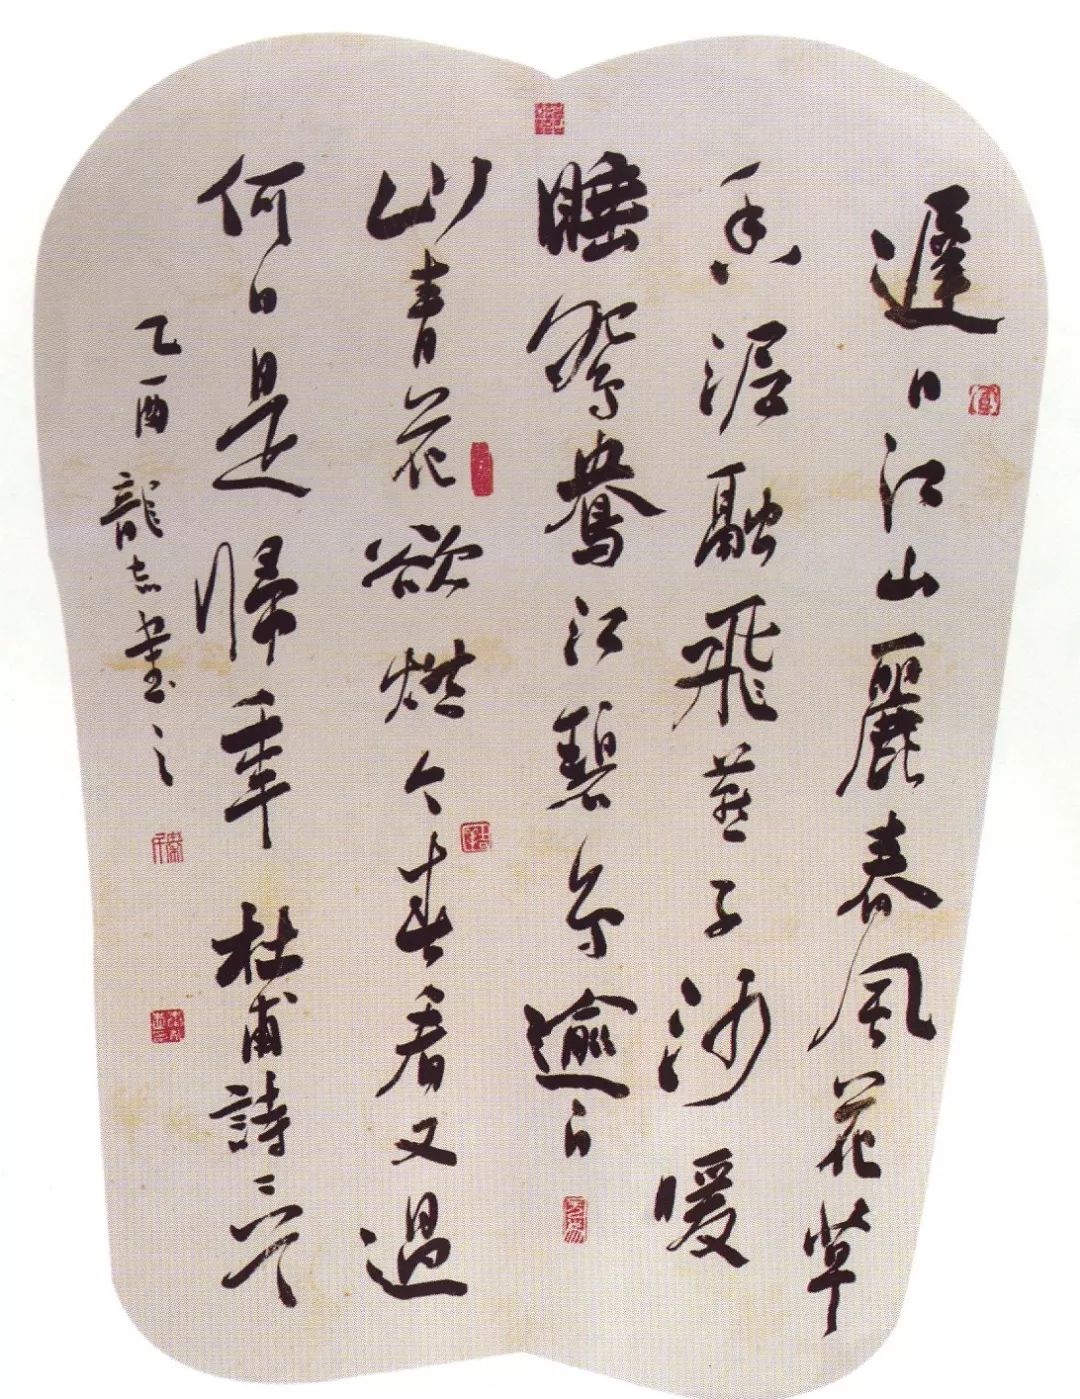 遲日江山麗春風花草
香泥融飛燕子沙暖
睡鴛鴦江碧鳥逾白
山青花欲燃今春看又過
何日是歸年杜甫詩二首
乙酉龍志書之